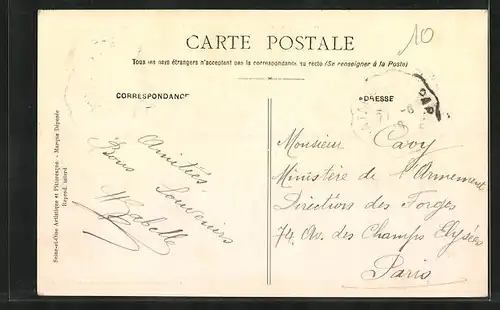 10
CARTE POSTALE
Tous les pays étrangers n'acceptent pas la correspondance au recto (Se renseigner à la Poste)
CORRESPONDANCE
ADRESSE
Seine-et-Oise Artistique et Pittoresque. - Marque Déposée
Reprod. interd
Amitiés
Bons Souvenirs
Monsieur Cavy
Ministère de l'Armement
Direction des Forges
74 Av. des Champs Elysées
Paris